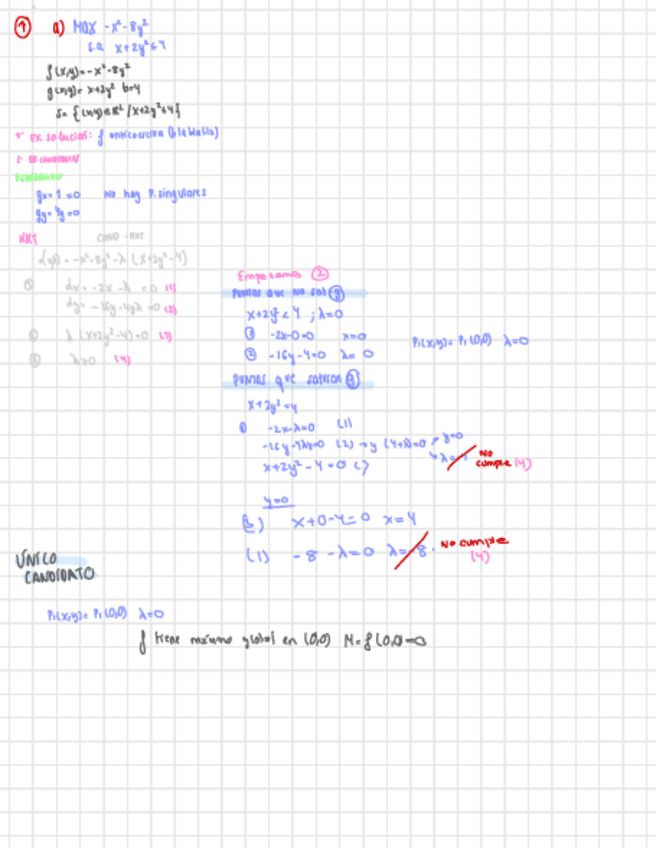 ① a) MAX -x²-8y²
s.a. x+2y²≤4
f(x,y)=-x²-8y²
g(x,y)= x+2y² b=4
S= {(x,y)∈ℝ² /x+2y²≤4}
1º Ex. solución: f anticoerciva (bla blabla)
2º candidatos
gx= 1 =0 No hay P. singulares
gy= 4y=0
KKT CAND. KKT
= -x²-8y²-λ (x+2y²-4)
① dx = -2x-λ =0 (1)
dy= -16y-4yλ =0 (2)
λ (x+2y²-4)=0 (3)
λ≥0 (4)
Empezamos ②
Puntos que no sat ⓖ
x+2y²<4 ; λ=0
① -2x-0=0 x=0
② -16y-4·0=0 λ= 0
P₁(x,y)= P₁(0,0) λ=0
Puntos que saturan ⓖ
x+2y²=4
① -2x-λ=0 (1)
-16y-4λy=0 (2) → y (4+λ)=0 y=0
λ= No cumple (4)
x+2y²-4=0
y=0
(3) x+0-4=0 x=4
(1) -8-λ=0 λ=-8. No cumple (4)
ÚNICO
CANDIDATO
P₁(x,y)= P₁(0,0) λ=0
f tiene máximo global en (0,0) M=f(0,0)=0